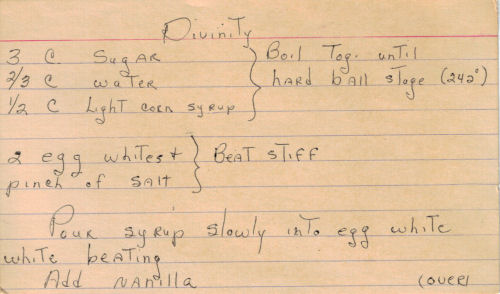 Divinity
3 C Sugar } Boil Tog. until
2/3 C water hard ball stage (242°)
1/2 C Light corn syrup
2 egg whites + } Beat stiff
pinch of salt
Pour syrup slowly into egg white
white beating
Add vanilla (over)